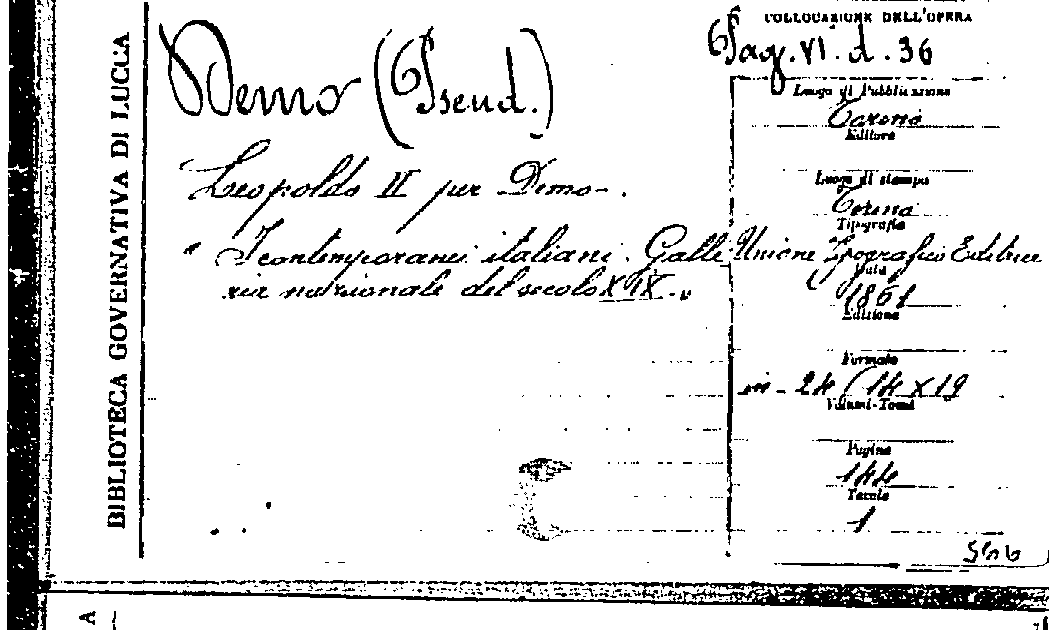 BIBLIOTECA GOVERNATIVA DI LUCCA
Demo (Pseud.)
Leopoldo II per Demo.
" I contemporanei italiani. Galle
ria nazionale del secolo XIX. "
COLLOCAZIONE DELL'OPERA
Pag. VI. d. 36
Luogo di Pubblicazione
Torino
Editore
Luogo di stampa
Torino
Tipografia
Unione Tipografico Editrice
Data
1861
Edizione
Formato
in-24 (14 x 19
Volumi-Tomi
Pagine
144
Tavole
1
A